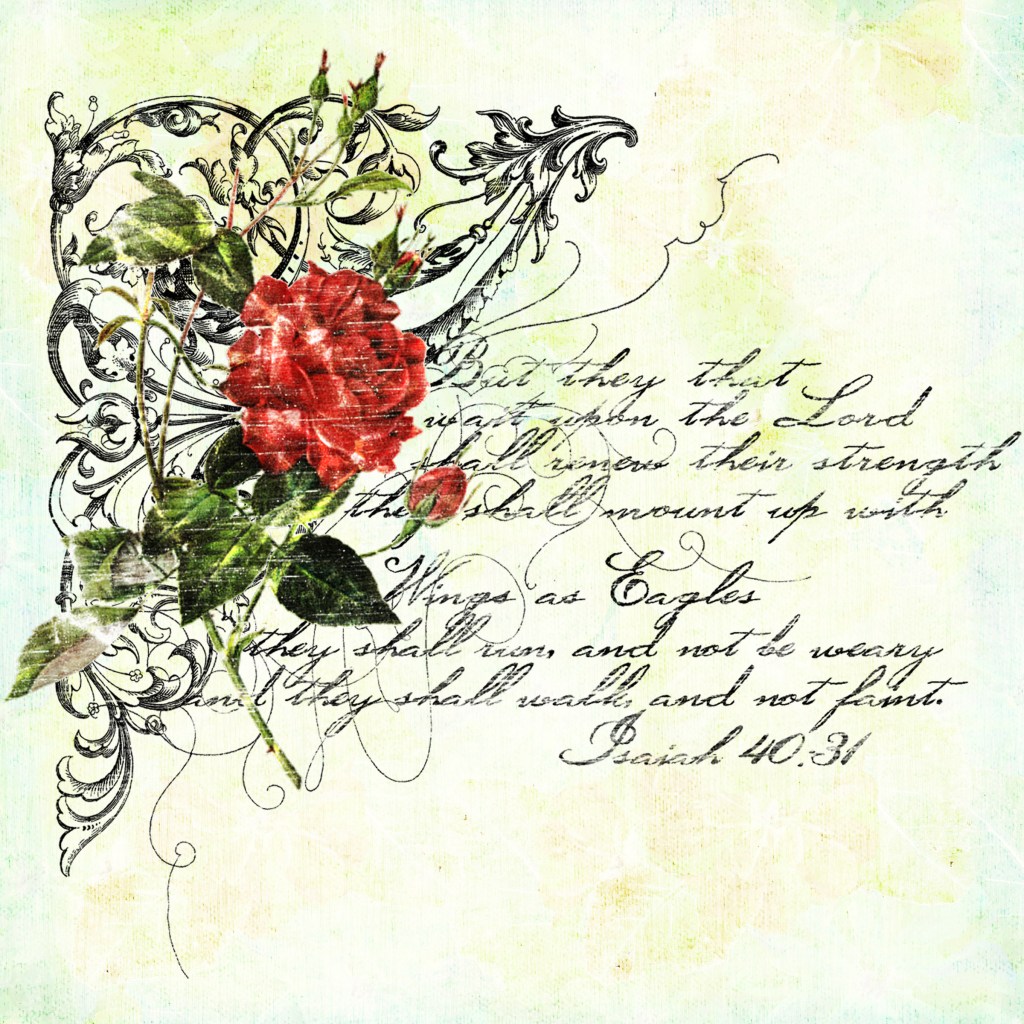 But they that
wait upon the Lord
shall renew their strength
they shall mount up with
Wings as Eagles
they shall run, and not be weary
and they shall walk, and not faint.
Isaiah 40:31